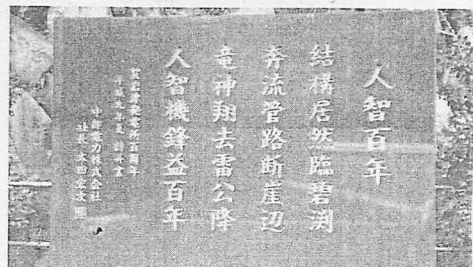 人智百年
結構居然臨碧渕
奔流管路断崖辺
竜神翔去雷公降
人智機鋒益百年
賀岩津発電所百周年
平成九年夏
中部電力株式会社
社長 太田宏次